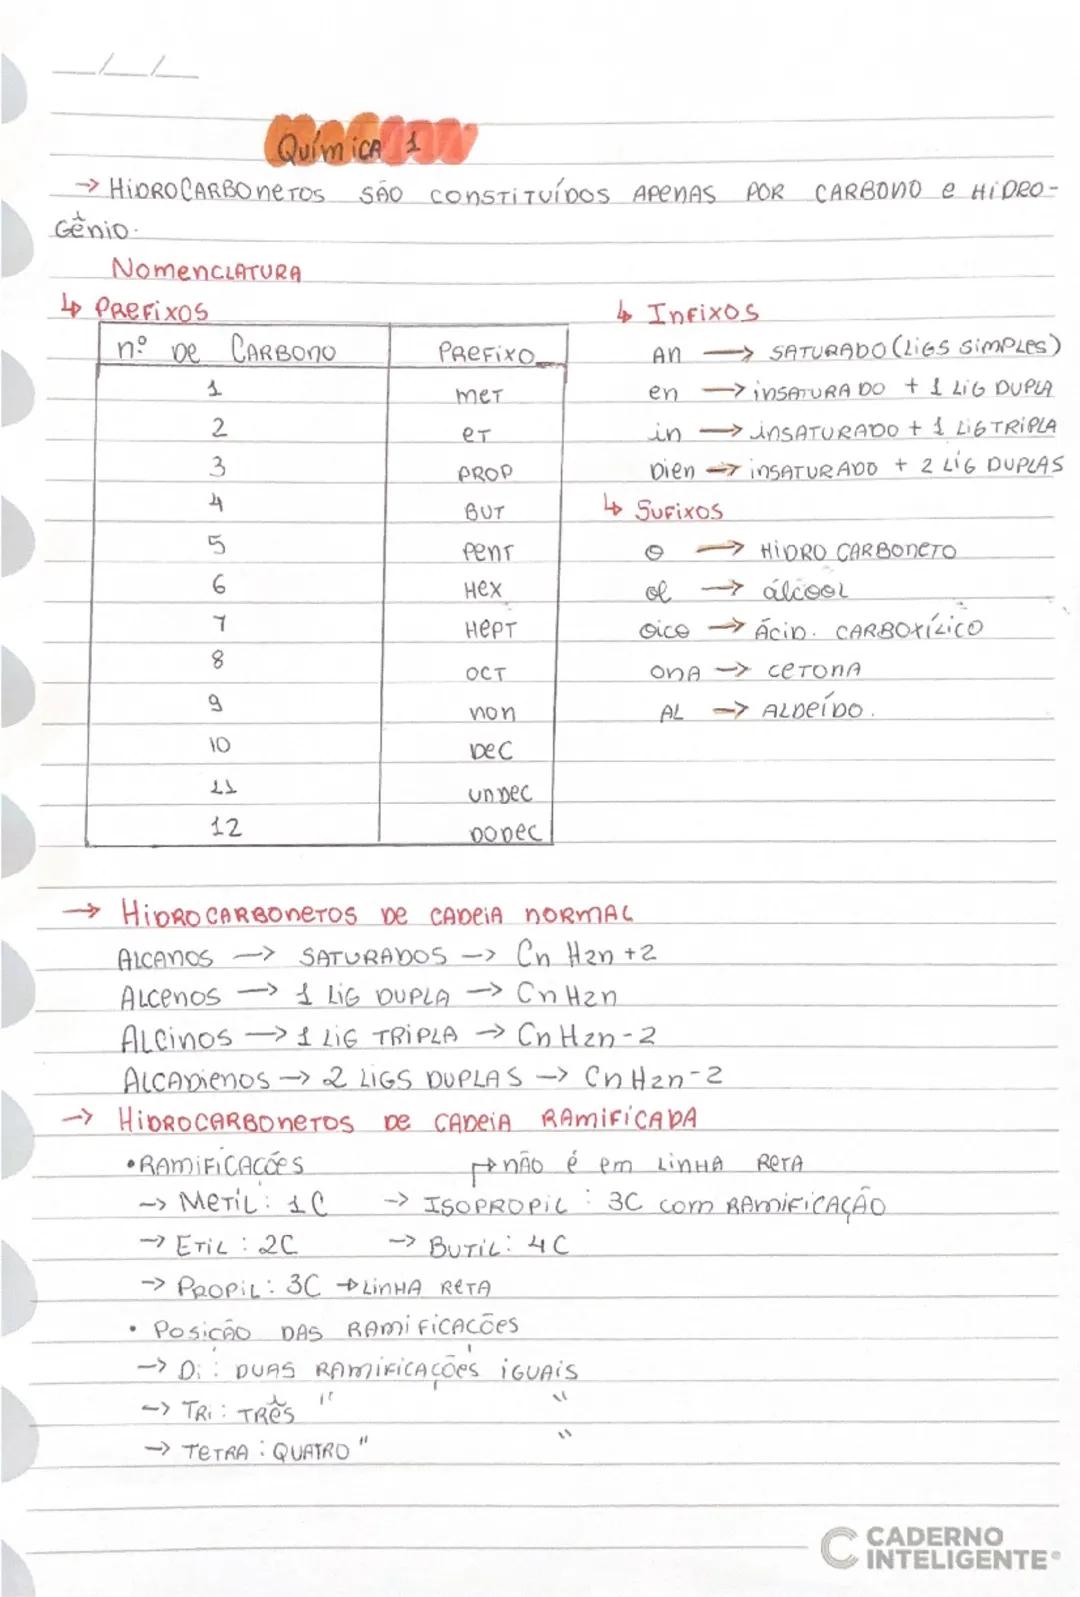 Química 1
→ Hidrocarbonetos são constituídos apenas por carbono e hidro-
gênio.
Nomenclatura
↳ Prefixos
nº de Carbono Prefixo
1 met
2 et
3 prop
4 but
5 pent
6 hex
7 hept
8 oct
9 non
10 dec
11 undec
12 dodec
↳ Infixos
an → saturado (ligs simples)
en → insaturado + 1 lig dupla
in → insaturado + 1 lig tripla
dien → insaturado + 2 lig duplas
↳ Sufixos
o → hidro carboneto
ol → álcool
oico → Ácid. carboxílico
ona → cetona
al → aldeído.
→ Hidrocarbonetos de cadeia normal
Alcanos → saturados → Cn H2n +2
Alcenos → 1 lig dupla → Cn H2n
Alcinos → 1 lig tripla → Cn H2n-2
Alcadienos → 2 ligs duplas → Cn H2n-2
→ Hidrocarbonetos de cadeia ramificada
• Ramificações ↱ não é em linha reta
→ Metil: 1C → Isopropil: 3C com ramificação
→ Etil: 2C → Butil: 4C
→ Propil: 3C → linha reta
• Posição das ramificações
→ Di: duas ramificações iguais
→ Tri: três " "
→ Tetra: quatro " "
CADERNO
INTELIGENTE®